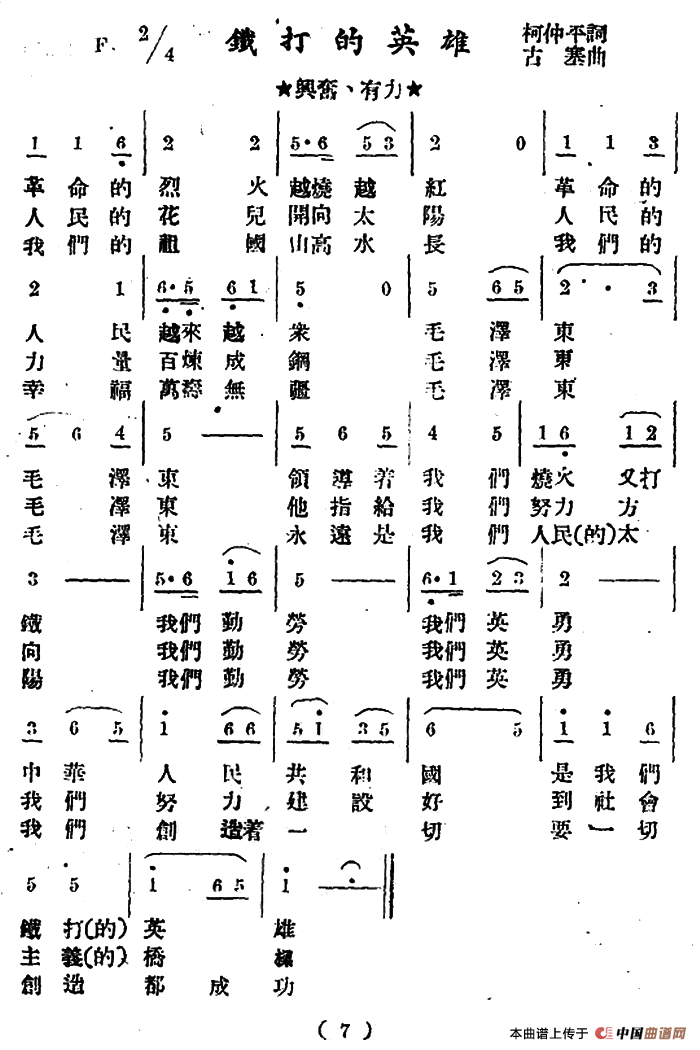 F. 2/4 鐵打的英雄 柯仲平詞
古塞曲
★興奮、有力★
1 1 6 | 2 2 | 5·6 5 3 | 2 0 | 1 1 3
革命的 烈火 越燒越 紅 革命的
人民的 花兒 開向太 陽 人民的
我們的 祖國 山高水 長 我們的
2 1 | 6·5 6 1 | 5 0 | 5 6 5 | 2· 3
人民 越來越 衆 毛澤 東
力量 百煉成 鋼 毛澤 東
幸福 萬壽無 疆 毛澤 東
5 6 4 | 5 — | 5 6 5 | 4 5 | 1 6 1 2
毛澤 東 領導着 我們 燒火又打
毛澤 東 他指給 我們 努力方
毛澤 東 永遠是 我們 人民(的)太
3 — | 5·6 1 6 | 5 — | 6·1 2 3 | 2 —
鐵 我們勤 勞 我們英 勇
向 我們勤 勞 我們英 勇
陽 我們勤 勞 我們英 勇
3 6 5 | 1 6 6 | 5 1 3 5 | 6 5 | 1 1 6
中華 人民 共和 國 是我們
我們 努力 建設 好 到社會
我們 創造著 一 切 要一切
5 5 | 1 6 5 | 1 —
鐵打(的) 英 雄
主義(的) 橋 樑
創造 都成 功
(7)
本曲谱上传于 中国曲谱网